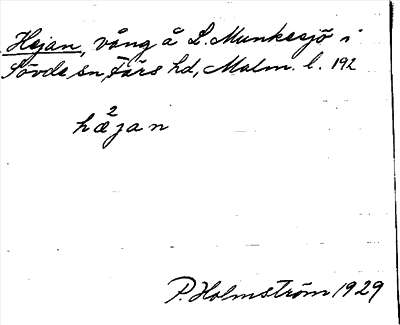 Hejan, vång å L. Munkesjö i
Sövde sn, Färs hd, Malm. l. 192
2
hæjan
P. Holmström 1929